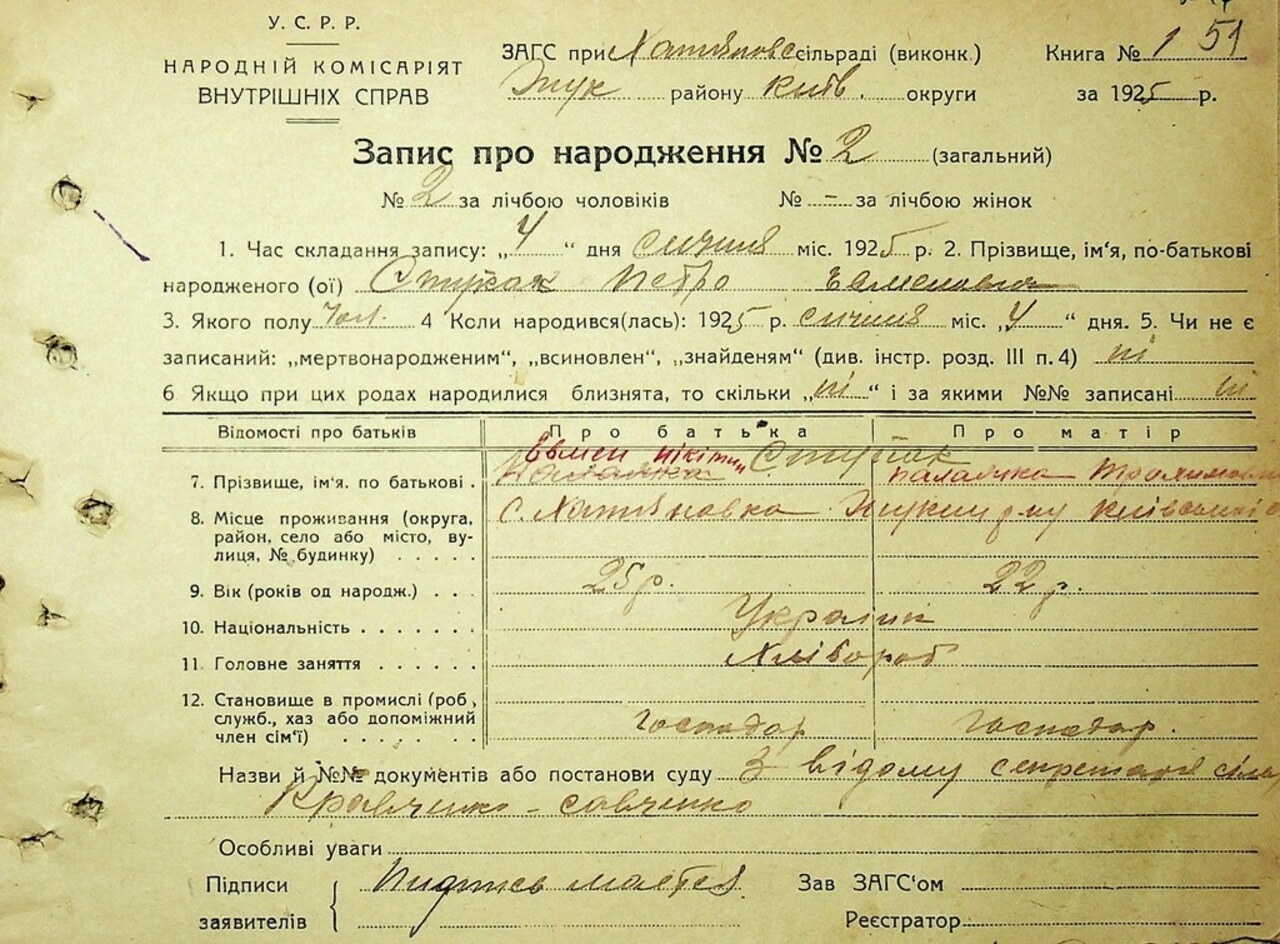 У. С. Р. Р.
НАРОДНІЙ КОМІСАРІЯТ
ВНУТРІШНІХ СПРАВ
ЗАГС при Хотянов сільраді (виконк.) Книга № 1 51
району Київ. округи за 1925 р.
Запис про народження № 2 (загальний)
№ 2 за лічбою чоловіків № - за лічбою жінок
1. Час складання запису: „4“ дня січня міс. 1925 р. 2. Прізвище, ім‘я, по-батькові
народженого (ої) Ступак Петро Евменович
3. Якого полу Чол. 4 Коли народився(лась): 1925 р. січня міс. „4“ дня. 5. Чи не є
записаний: „мертвонародженим“, „всиновлен“, „знайденям“ (див. інстр. розд. III п. 4) ні
6 Якщо при цих родах народилися близнята, то скільки „ні“ і за якими №№ записані ні
Відомості про батьків Про батька Про матір
7. Прізвище, ім‘я. по батькові . Евмен Нікітин Ступак Палажка
8. Місце проживання (округа,
район, село або місто, ву-
лиця, № будинку) . . . . . с. Хотяновка
9. Вік (років од народж.) . . . 25 р. 22 р.
10. Національність . . . . . . . Українці
11. Головне заняття . . . . . . Хлібороб
12. Становище в промислі (роб,
служб., хаз або допоміжний
член сім‘ї) . . . . . . Господар Господар.
Назви й №№ документів або постанови суду З відому секретаря
Кравченко - Савченко
Особливі уваги
Підписи
заявителів
Зав ЗАГС‘ом
Реєстратор